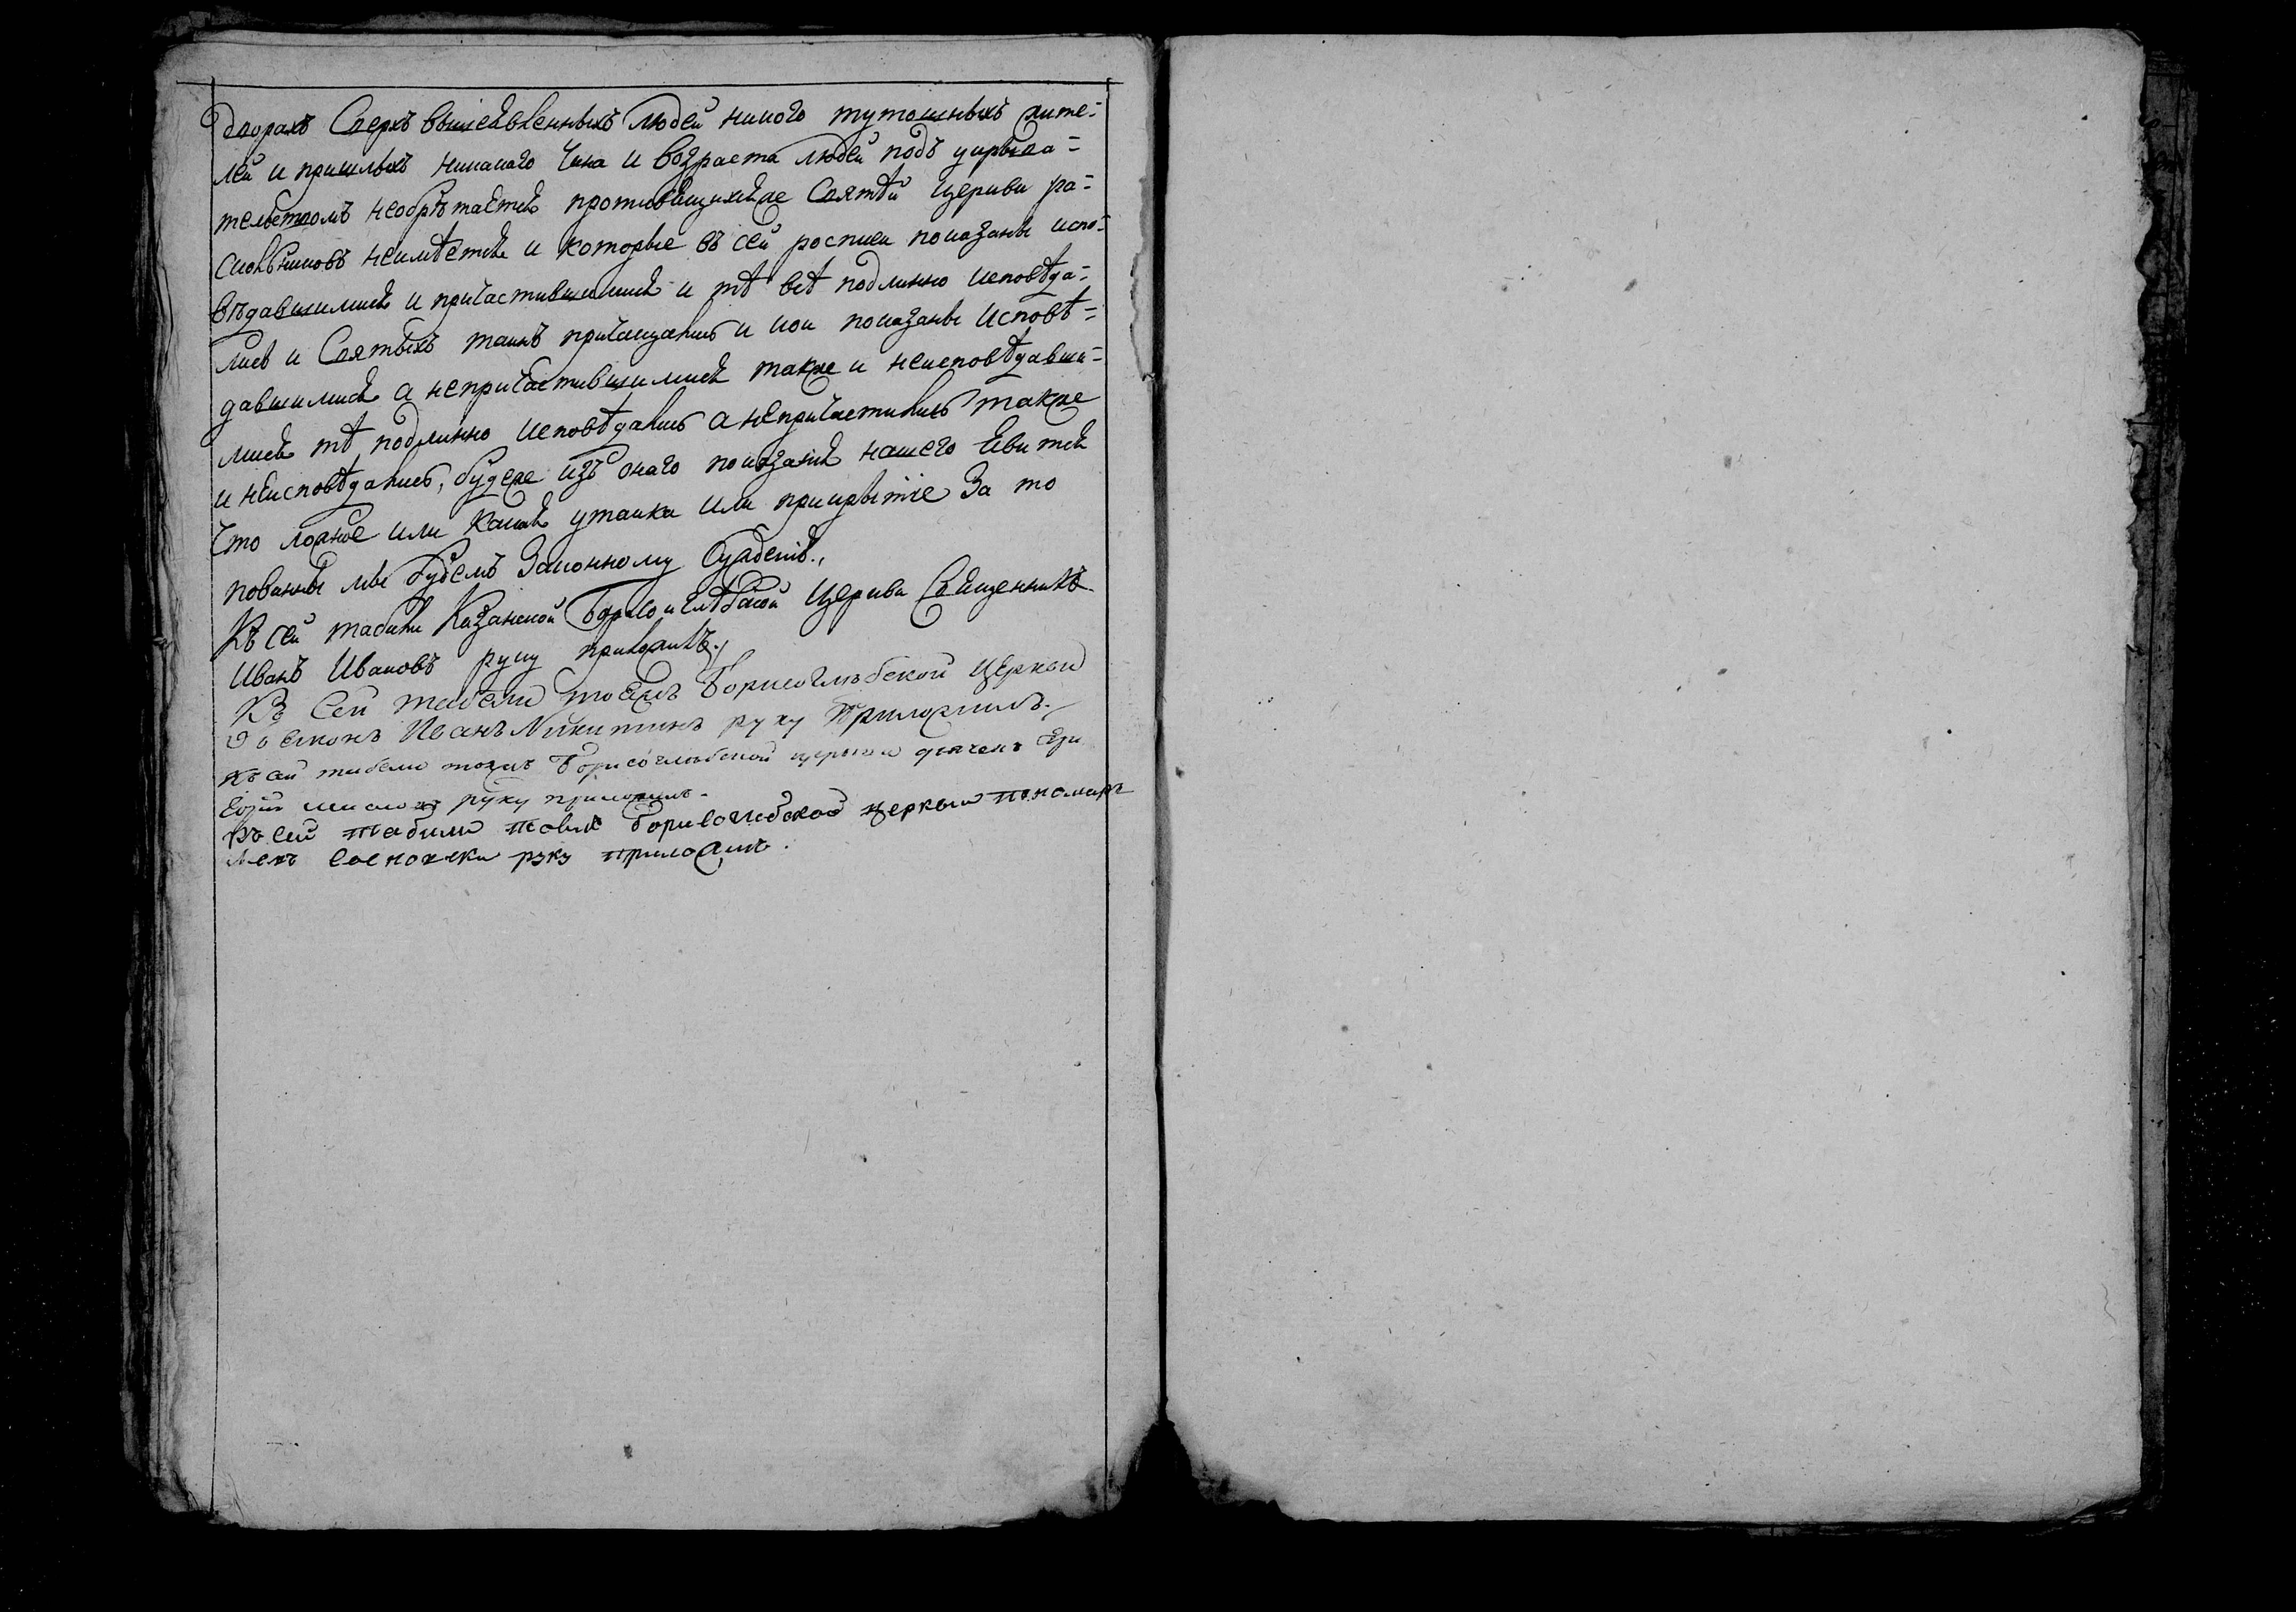 дворахъ Сверхъ вышеявленныхъ людей никого тутошныхъ жите-
лей и пришлыхъ никакого Чина и возраста людей подъ укрыва-
тельствомъ необрѣтается противящихсяже Святѣй Церкви ра-
скольниковъ неимѣется и которые въ сей росписи показаны испо-
вѣдавшимися и причастившимися и тѣ всѣ подлинно исповѣда-
лись и Святыхъ таинъ причащались и кои показаны Исповѣ-
давшимися а непричастившимися также и неисповѣдавши-
мися тѣ подлинно исповѣдались а непричастились также
и неисповѣдались, будеже изъ онаго показания нашего явится
Что ложное или Какая утайка или прикрытие За то
повинны мы будемъ Законному Суждению.,
Къ сей табели Казанской Борисоглѣбской Церкви Священникъ
Иванъ Ивановъ руку приложилъ.
Къ Сей табели тоежъ Борисоглѣбской Церкви
Дьяконъ Иванъ Никитинъ руку Приложилъ.
къ сей табели тоежъ Борисоглѣбской церкви дьячекъ
руку приложилъ.
Къ сей табели тоежъ Борисоглебской церкви пономарь
руку приложилъ.